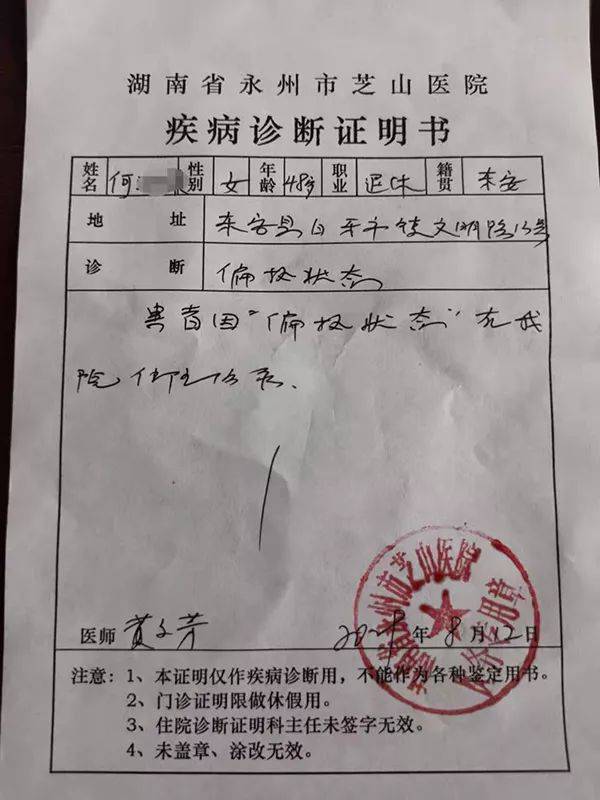 湖南省永州市芝山医院
疾病诊断证明书
姓名 何 性别 女 年龄 48岁 职业 退休 籍贯 东安
地址 东安县白牙市镇文明路
诊断 偏执状态
患者因"偏执状态"在我
院住
医师 黄 芳 年 8月12日
注意：1、本证明仅作疾病诊断用，不能作为各种鉴定用书。
2、门诊证明限做休假用。
3、住院诊断证明科主任未签字无效。
4、未盖章、涂改无效。
永州市芝山医院
专用章